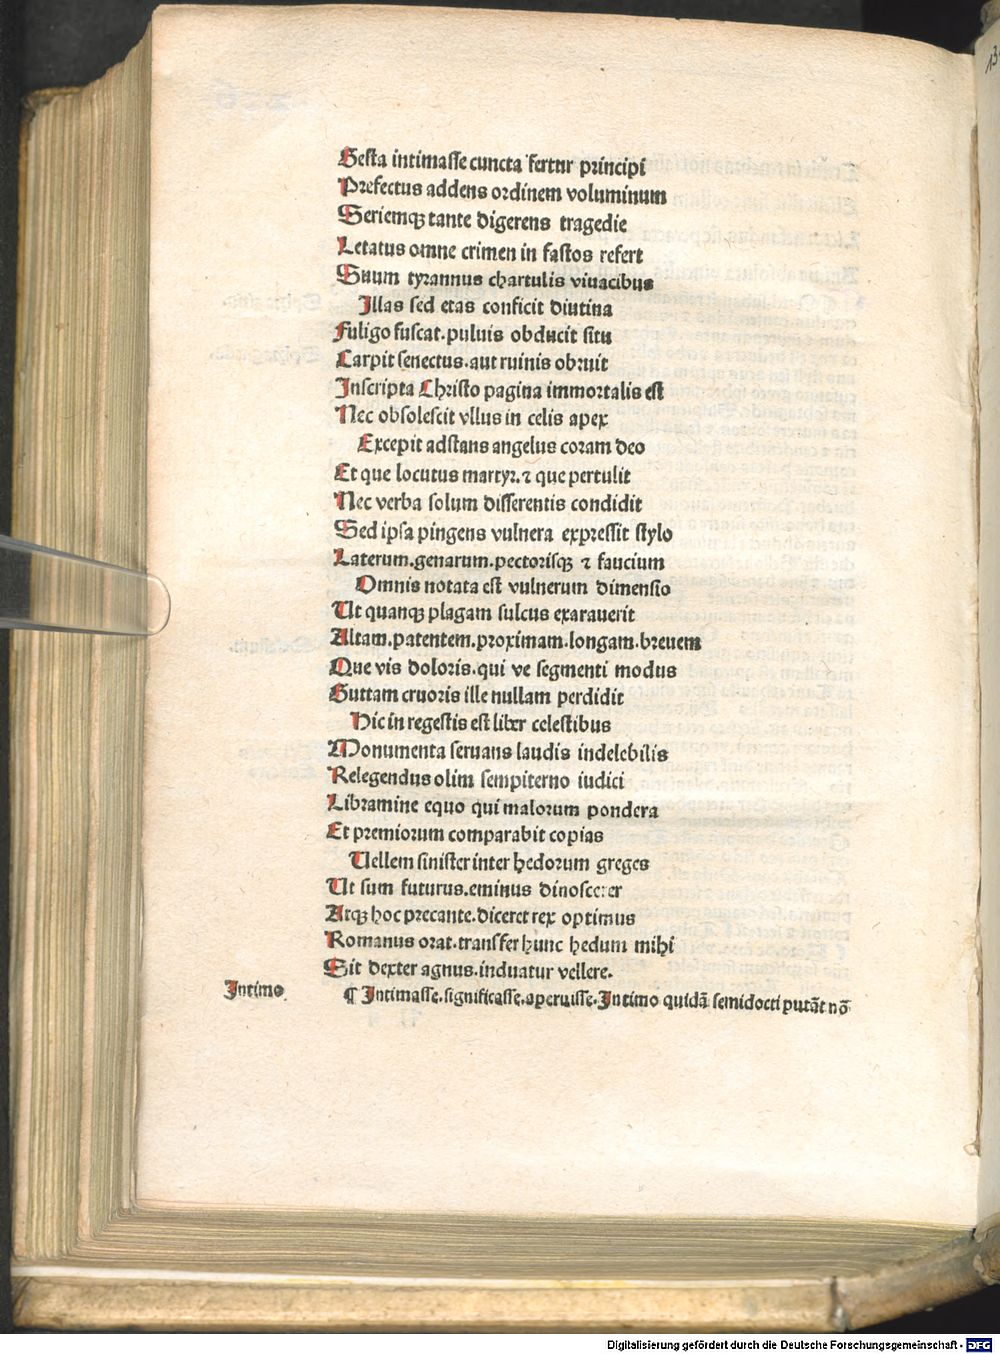 Gesta intimasse cuncta fertur principi
Prefectus addens ordinem voluminum
Seriemqꝫ tante digerens tragedie
Letatus omne crimen in fastos refert
Suum tyrannus chartulis viuacibus
Illas sed etas conficit diutina
Fuligo fuscat.puluis obducit situ
Carpit senectus.aut ruinis obruit
Inscripta Christo pagina immortalis est
Nec obsolescit vllus in celis apex
Excepit adstans angelus coram deo
Et que locutus martyr.⁊ que pertulit
Nec verba solum disserentis condidit
Sed ipsa pingens vulnera expressit stylo
Laterum.genarum.pectorisqꝫ ⁊ faucium
Omnis notata est vulnerum dimensio
Ut quanqꝫ plagam sulcus exarauerit
Altam.patentem.proximam.longam.breuem
Que vis doloris.qui ve segmenti modus
Guttam cruoris ille nullam perdidit
Hic in regestis est liber celestibus
Monumenta seruans laudis indelebilis
Relegendus olim sempiterno iudici
Libramine equo qui malorum pondera
Et premiorum comparabit copias
Uellem sinister inter hedorum greges
Ut sum futurus.eminus dinoscerer
Atqꝫ hoc precante.diceret rex optimus
Romanus orat.transfer hunc hedum mihi
Sit dexter agnus.induatur vellere.
Intimo.
¶ Intimasse.significasse.aperuisse.Intimo quidā semidocti putāt nō
Digitalisierung gefördert durch die Deutsche Forschungsgemeinschaft - DFG